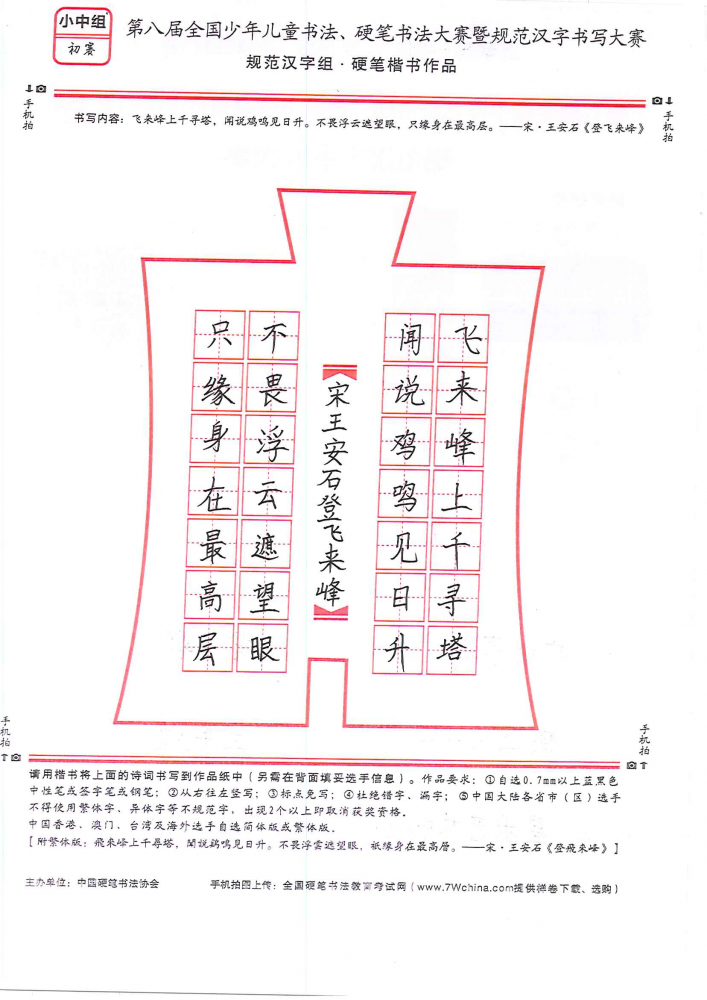 小中组
初赛
第八届全国少年儿童书法、硬笔书法大赛暨规范汉字书写大赛
规范汉字组·硬笔楷书作品
手机拍
手机拍
书写内容：飞来峰上千寻塔，闻说鸡鸣见日升。不畏浮云遮望眼，只缘身在最高层。——宋·王安石《登飞来峰》
飞来峰上千寻塔
闻说鸡鸣见日升
宋王安石登飞来峰
不畏浮云遮望眼
只缘身在最高层
手机拍
手机拍
请用楷书将上面的诗词书写到作品纸中（另需在背面填妥选手信息）。作品要求：①自选0.7mm以上蓝黑色
中性笔或签字笔或钢笔；②从右往左竖写；③标点免写；④杜绝错字、漏字；⑤中国大陆各省市（区）选手
不得使用繁体字、异体字等不规范字，出现2个以上即取消获奖资格。
中国香港、澳门、台湾及海外选手自选简体版或繁体版。
[ 附繁体版：飛來峰上千尋塔，聞說鷄鳴見日升。不畏浮雲遮望眼，祇缘身在最高層。——宋·王安石《登飛来峰》]
主办单位：中国硬笔书法协会
手机拍图上传：全国硬笔书法教育考试网（www.7Wchina.com提供样卷下载、选购）